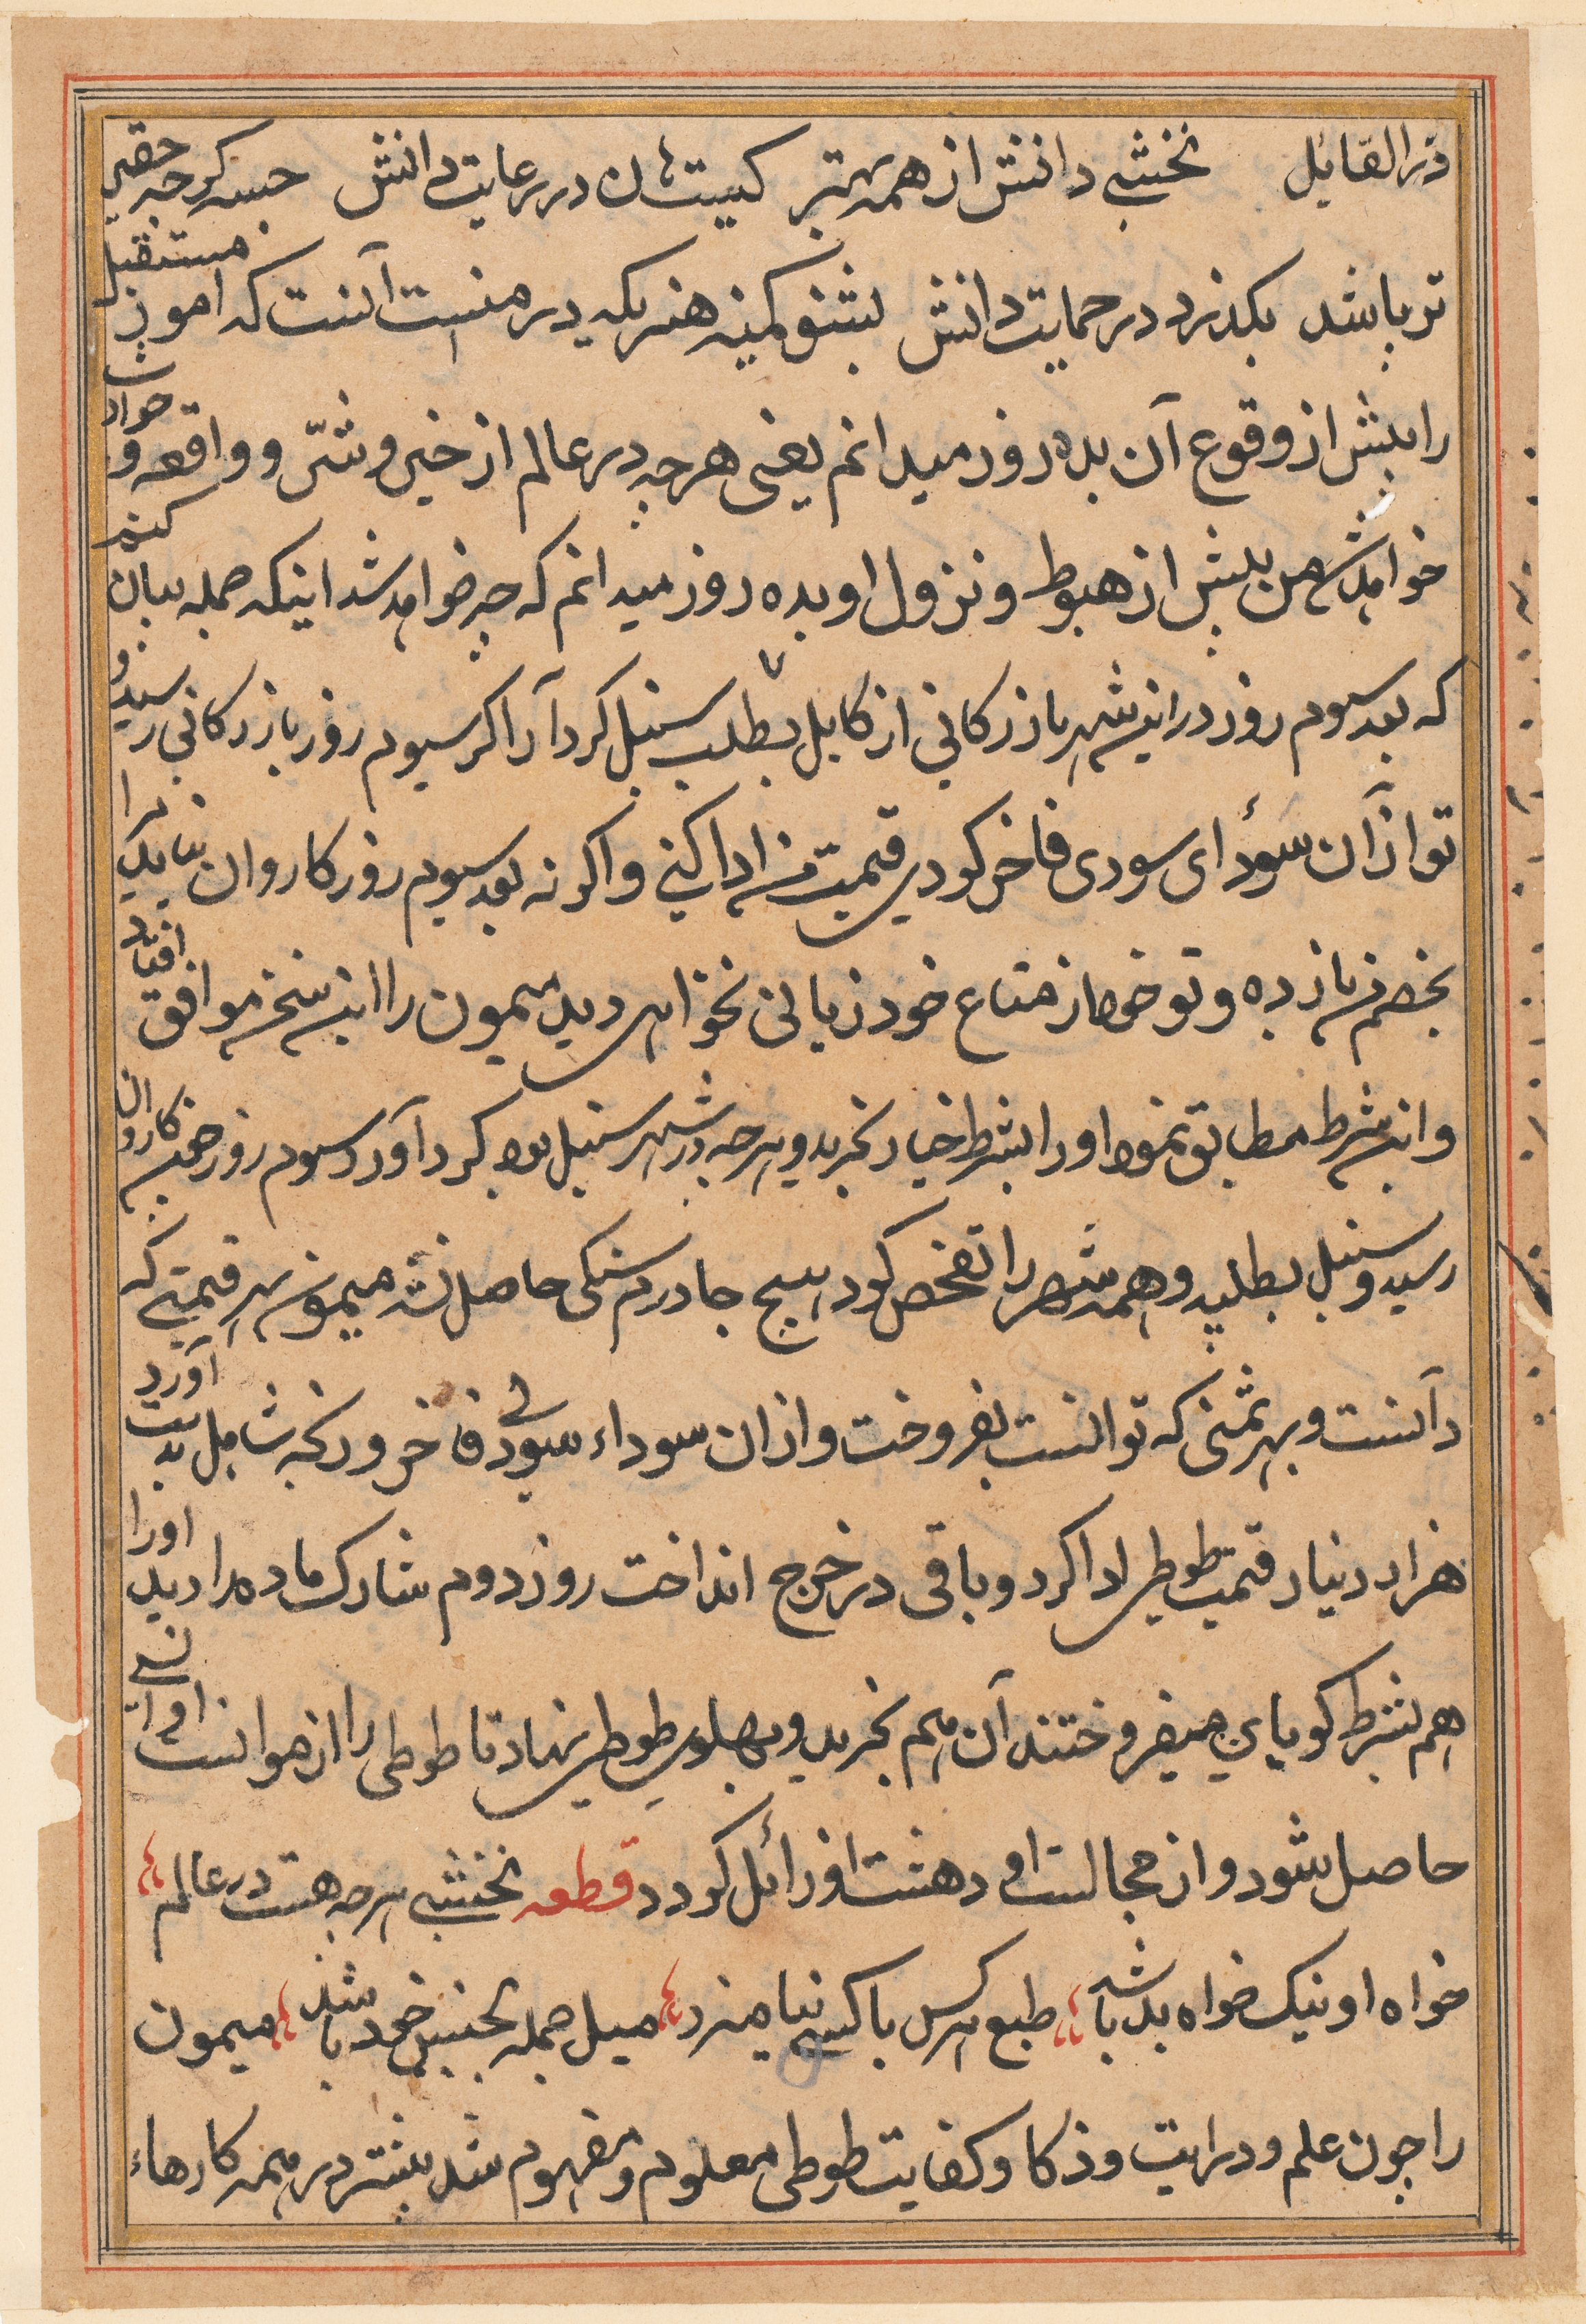 درالقایل نخشبی دانش از همه بهتر کیست کان در رعایت دانش خسه کرچه حقیر
تر باشد بکذرد در حمایت دانش بشنو کمینه هنریکه در منست آنست که امور مستقبل
را بیش از وقوع آن بده روز میدانم یعنی هرچه در عالم از خیر و شر و واقعه و حوادث
خواهد شد من پیش از هبوط و نزول او بده روز میدانم که چه خواهد شد اینکه جمله بیان کنم
که بعد سیوم روز در این شهر بازرکانی از کابل بطلب سنبل کرد آرا کر سیوم روز بازرکانی رسید و
تو از آن سودای سودی فاخر کودی قیمت من ادا کنی و اکر نه بعد سیوم روز کاروان نیاید مرا
بخصم من باز ده و تو خود از متاع خود زیانی نخواهی دید میمون را این سخن موافق افتاد
و این شرط مطابق نمود او را بشرط خیار بخرید و هرچه در شهر سنبل بود کرد آورد سیوم روز همین کاروان
رسید و سنبل بطلبید و همه شهر را تفحص کود هیچ جا درم سنکی حاصل نشد میمون بهر قیمتی که
دانست و بهر ثمنی که توانست بفروخت و از ان سوداء سودی فاخر و ربحی شامل بدست آورد
هزار دینار قیمت طوطی ادا کرد و باقی در خرج انداخت روز دوم شارک ماده را دید او را
هم بشرط کویایی میفروختند آن هم بخرید و بپهلوی طوطی نهاد تا طوطی را از موانست او انسی
حاصل شود و از مجالست او دهشت او زائل کودد قطعه نخشبی هرچه هست در عالم
خواه او نیک خواه بد باشد طبع هر کس با کسی نیامیزد میل جمله بجنس خود باشد میمون
را چون علم و درایت و ذکا و کفایت طوطی معلوم و مفهوم شد بیشتر در همه کارهاء